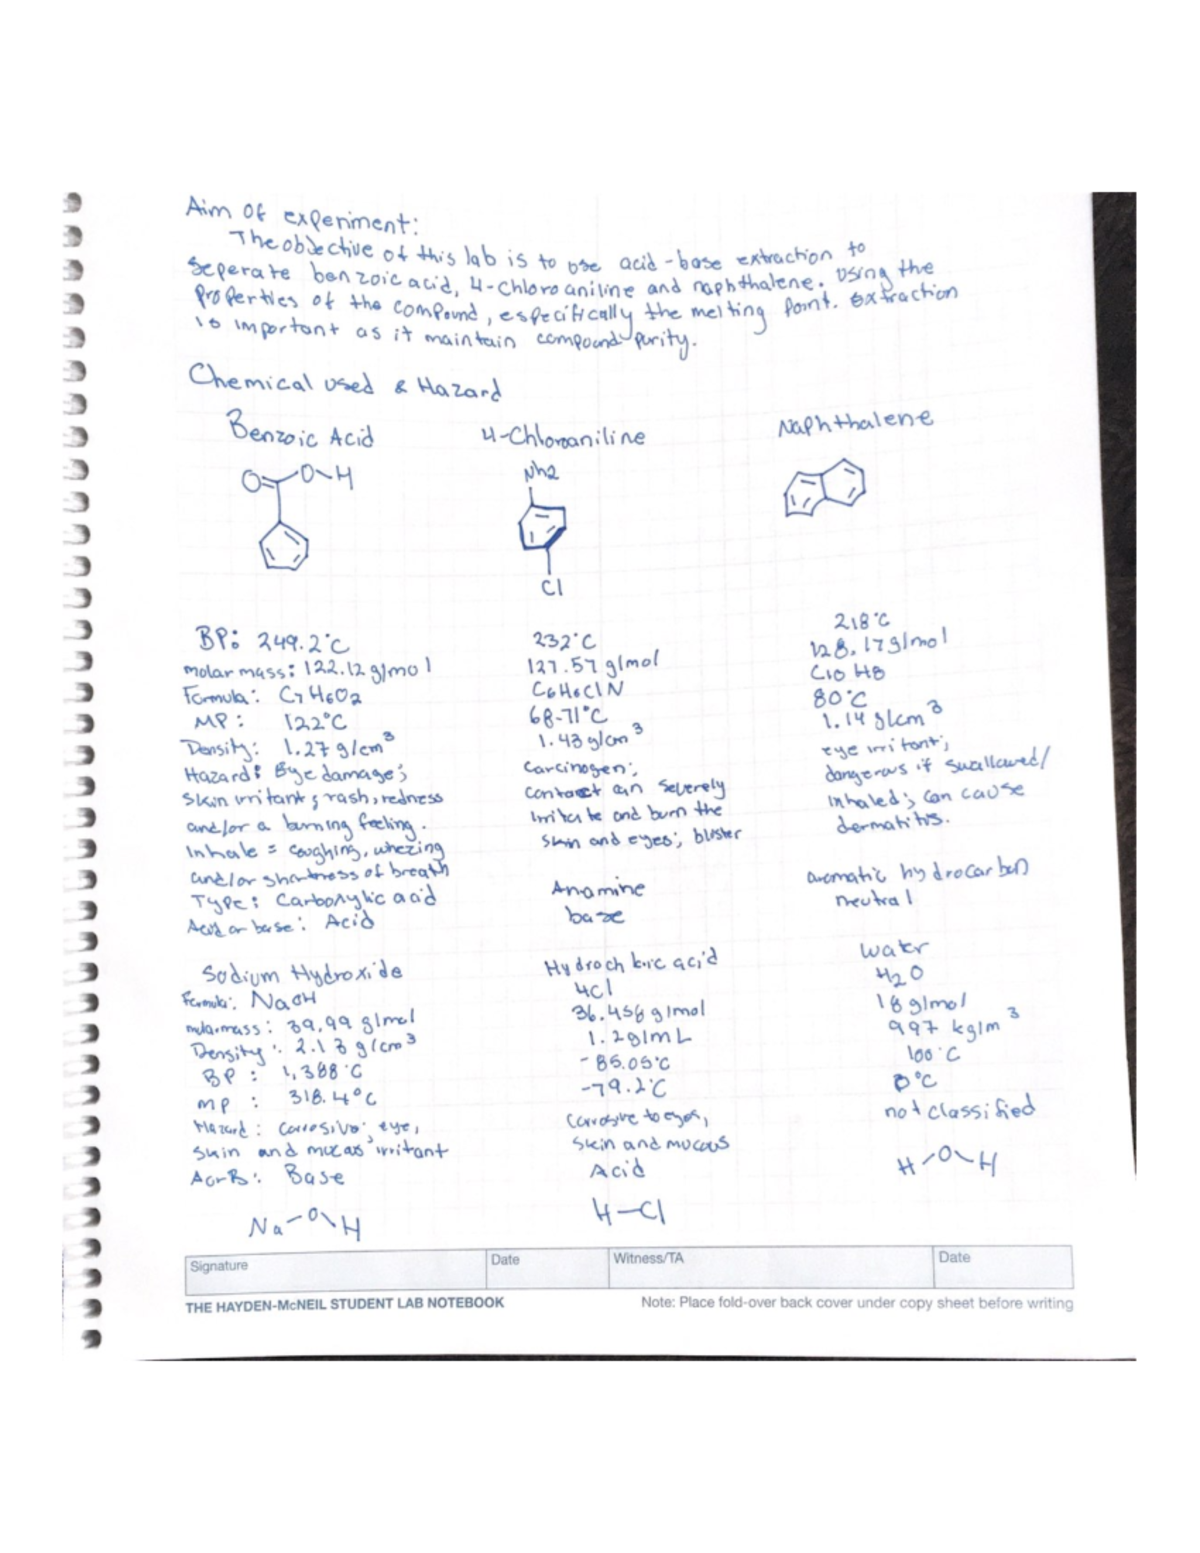 Aim of experiment:
The objective of this lab is to use acid-base extraction to
seperate benzoic acid, 4-chloroaniline and naphthalene. Using the
properties of the compound, especifically the melting point. extraction
is important as it maintain compound purity.
Chemical used & Hazard
Benzoic Acid 4-Chloroaniline Naphthalene
O O-H Nh2
Cl
BP: 249.2°C 232°C 218°C
molar mass: 122.12 g/mol 127.57 g/mol 128.17 g/mol
Formula: C7H6O2 C6H6ClN C10H8
MP: 122°C 68-71°C 80°C
Density: 1.27 g/cm3 1.43 g/cm3 1.14 g/cm3
Hazard: Eye damage; Carcinogen; eye irritant;
skin irritant; rash, redness contact can severely dangerous if swallowed/
and/or a burning feeling. irritate and burn the inhaled; can cause
Inhale = coughing, whezing skin and eyes; blister dermatitis.
and/or shortness of breath
Type: Carboxylic acid Anamine aromatic hydrocarbon
Acid or base: Acid base neutral
Sodium Hydroxide Hydrochloric acid water
Formula: NaOH HCl H2O
molarmass: 39,99 g/mol 36.458 g/mol 18 g/mol
Density: 2.13 g/cm3 1.2g/mL 997 kg/m3
BP: 1,388°C -85.05°C 100°C
mp: 318.4°C -79.2°C 0°C
Hazard: corrosive; eye, Corrosive to eyes, not classified
skin and mucas irritant skin and mucous
A or B: Base Acid H-O-H
Na-O-H H-Cl
Signature Date Witness/TA Date
THE HAYDEN-McNEIL STUDENT LAB NOTEBOOK Note: Place fold-over back cover under copy sheet before writing